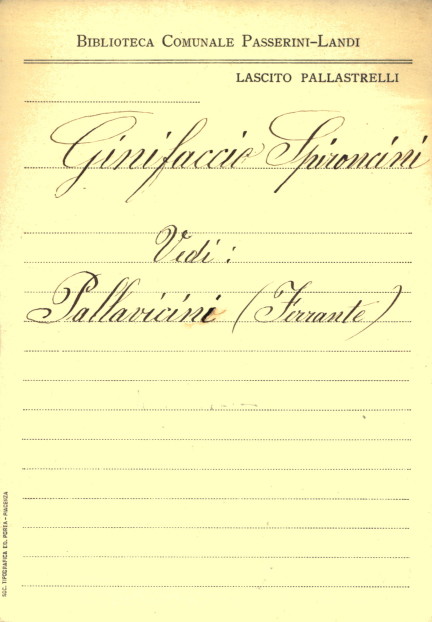 BIBLIOTECA COMUNALE PASSERINI-LANDI
LASCITO PALLASTRELLI
Ginifaccio Spironcini
Vedi:
Pallavicini (Ferrante)
SOC. TIPOGRAFICA ED. PORTA - PIACENZA